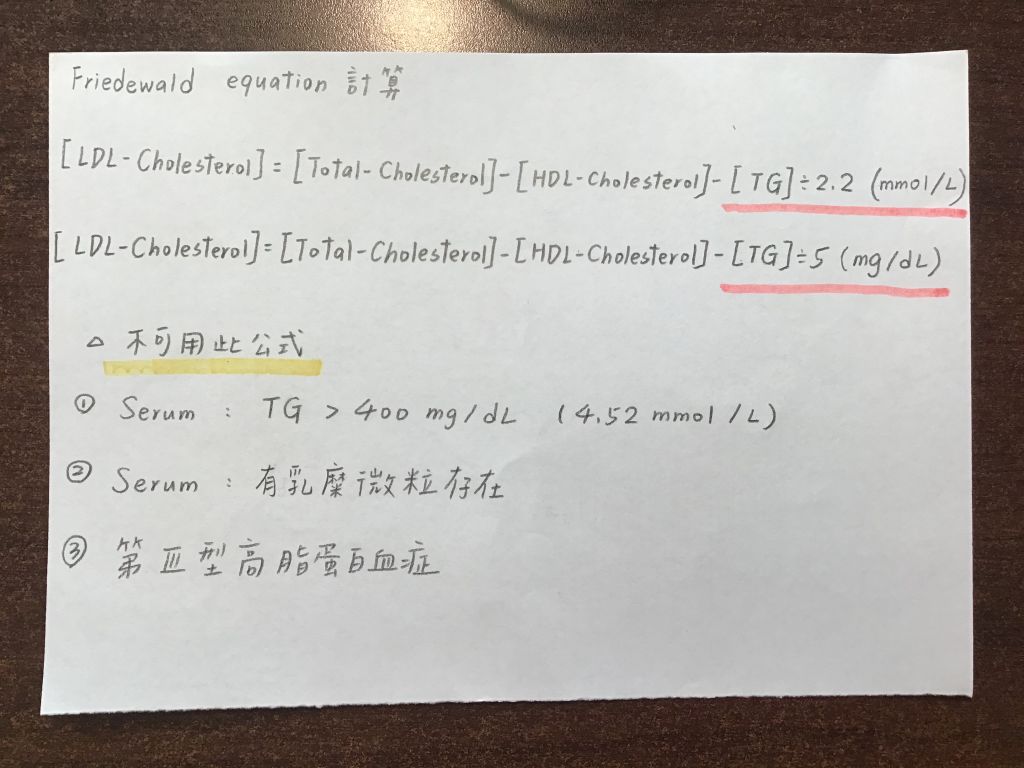 Friedewald equation 計算
[LDL-Cholesterol]=[Total-Cholesterol]-[HDL-Cholesterol]-[TG]÷2.2 (mmol/L)
[LDL-Cholesterol]=[Total-Cholesterol]-[HDL-Cholesterol]-[TG]÷5 (mg/dL)
△ 不可用此公式
① Serum : TG > 400 mg/dL (4.52 mmol/L)
② Serum : 有乳糜微粒存在
③ 第Ⅲ型高脂蛋白血症